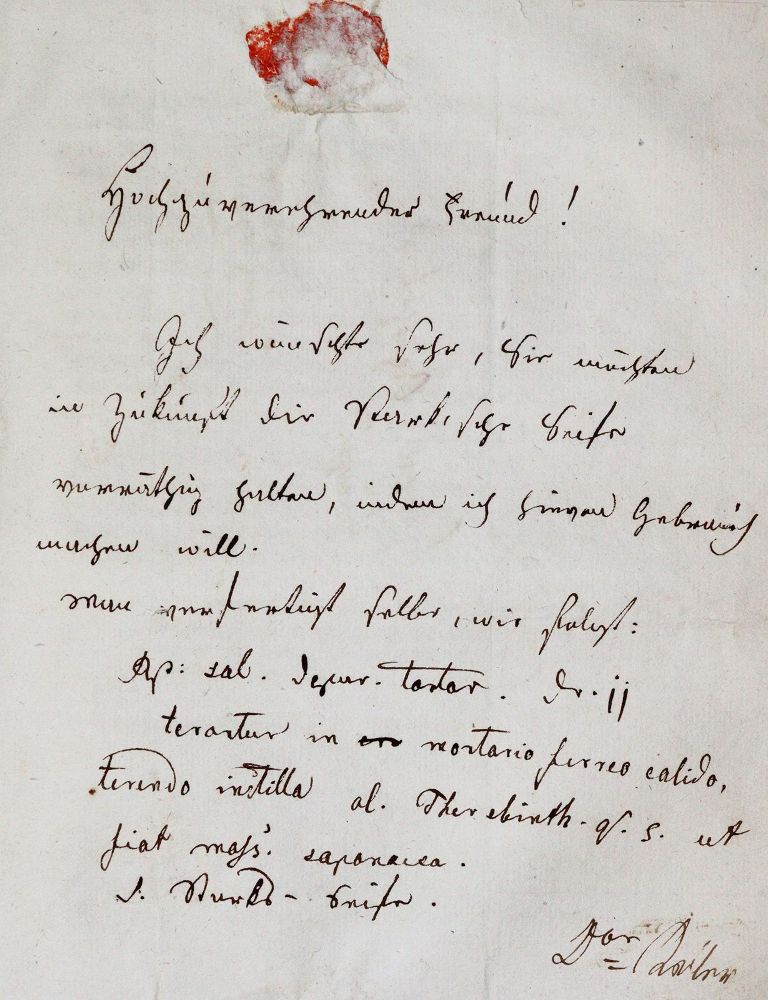 Hochzuverehrender Freund!
Ich wünschte sehr, Sie möchten
in Zukunft die Stark'sche Seife
vorräthig halten, indem ich hievon Gebrauch
machen will.
Man verfertigt selbe, wie folgt:
Rp: sal. depur. tartar. dr. jj
terantur in mortario ferreo calido,
terendo instilla ol. Therebinth. q. s. ut
fiat mass. saponacea.
S. Starks-Seife.
Dor